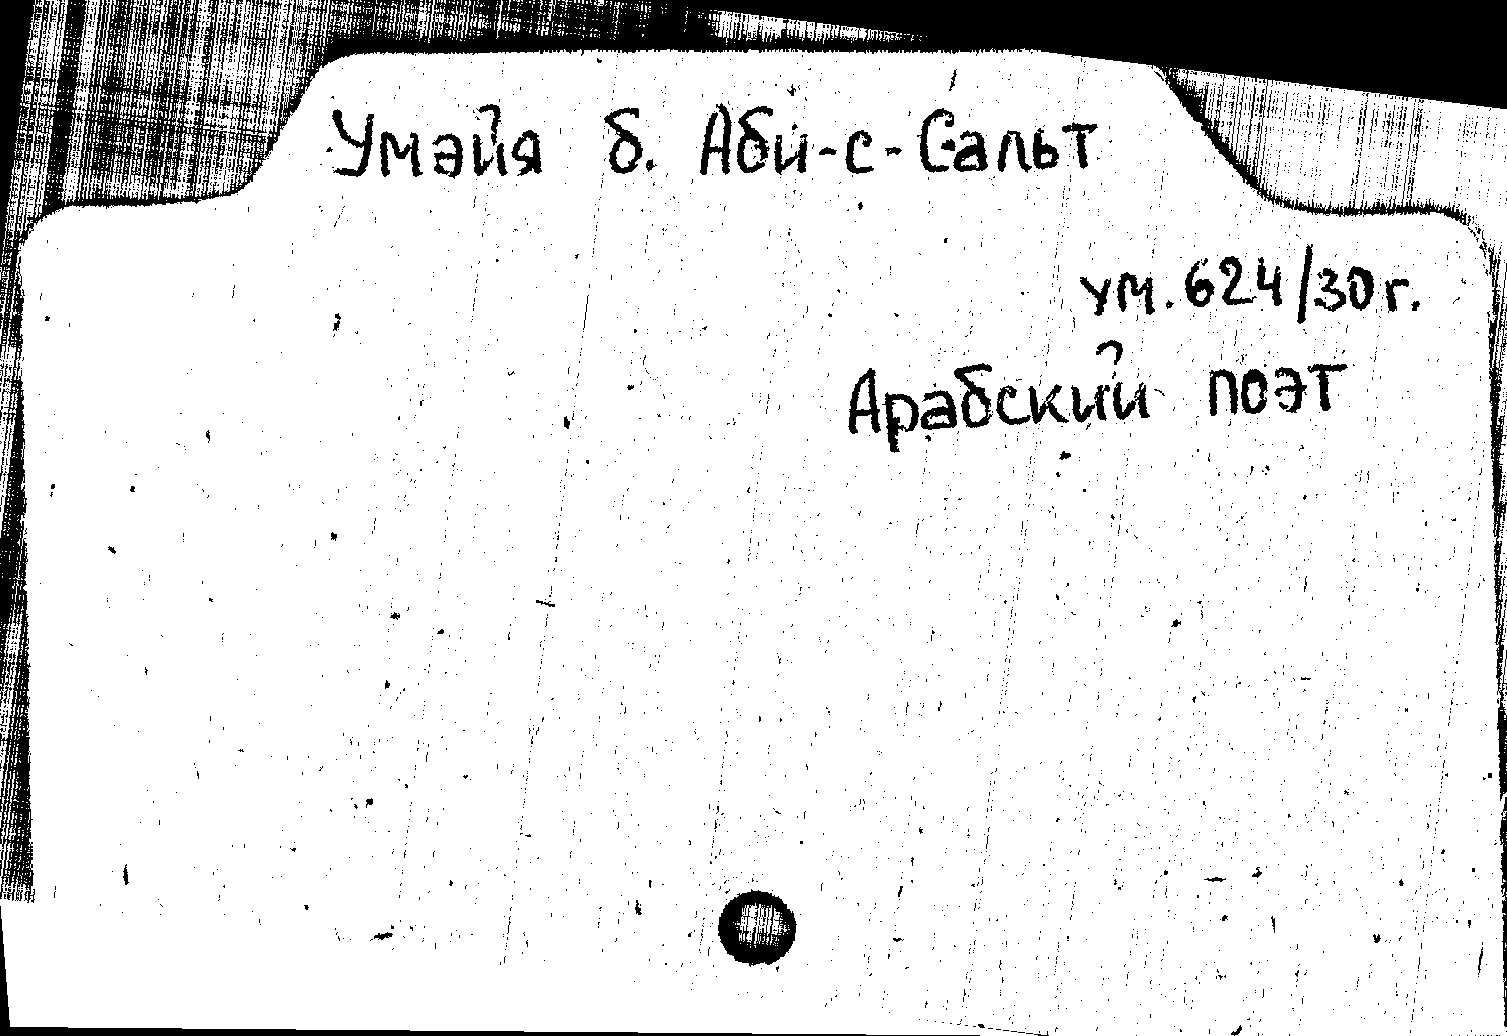 Умәйя б. Аби-с-Сальт
ум. 624/30 г.
Арабский поэт